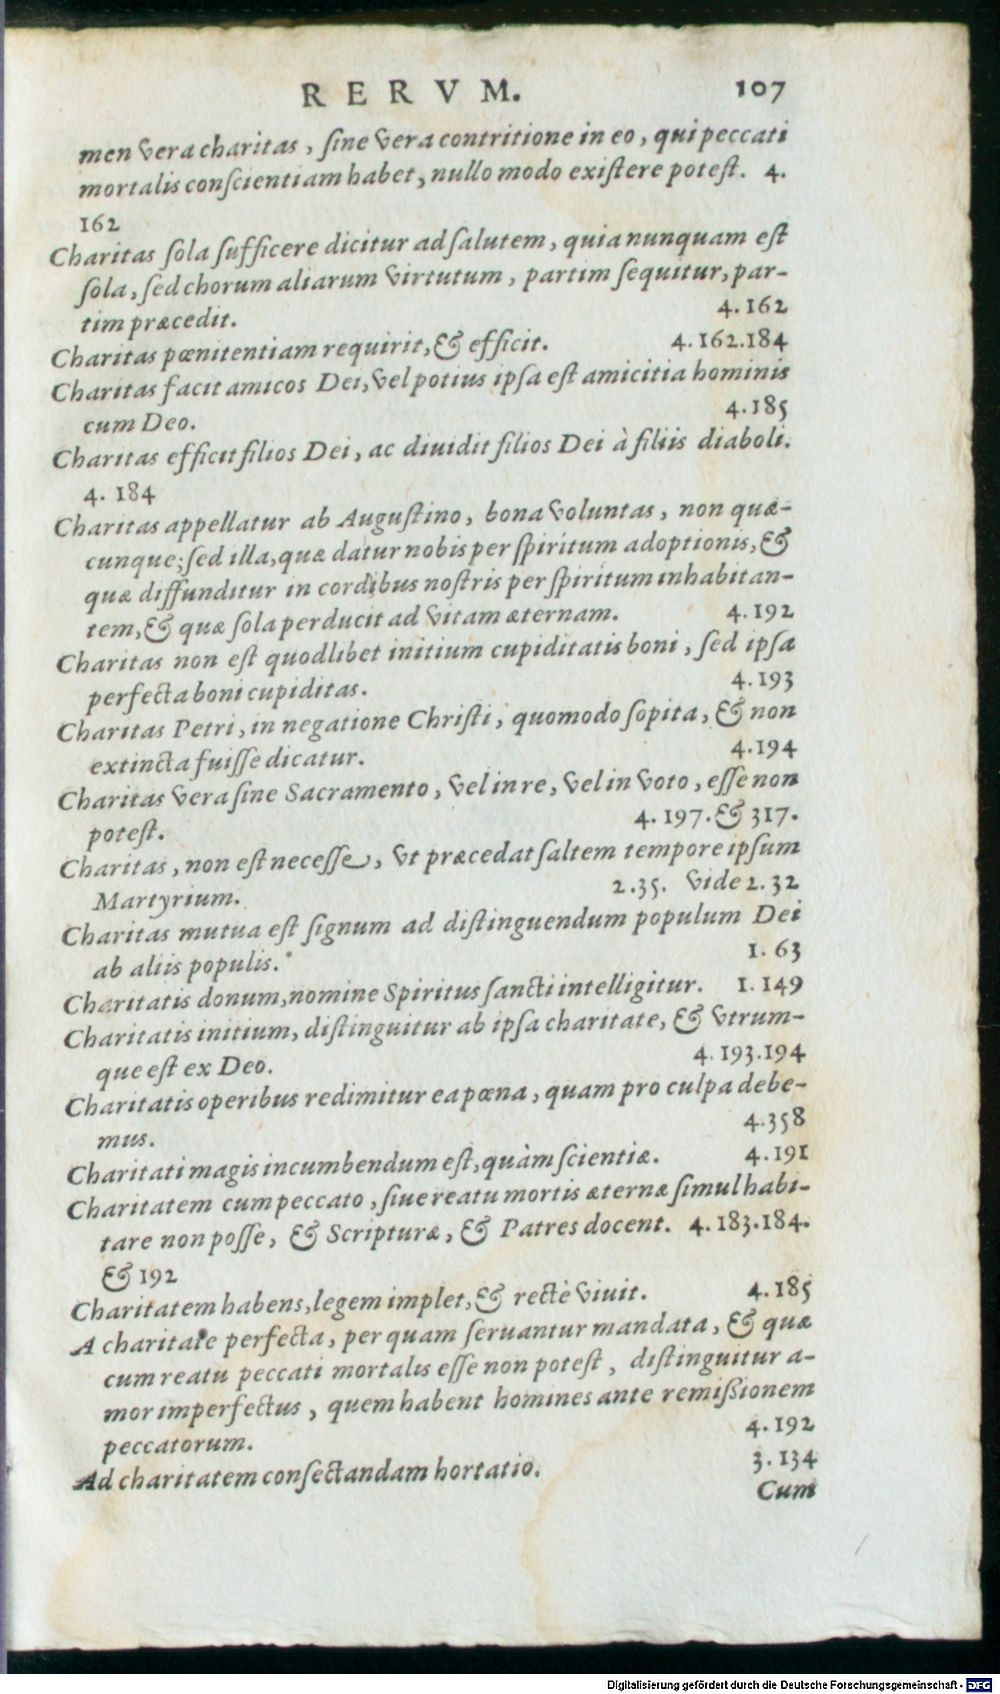 RERVM. 107
men vera charitas, sine vera contritione in eo, qui peccati
mortalis conscientiam habet, nullo modo existere potest. 4.
162
Charitas sola sufficere dicitur ad salutem, quia nunquam est
sola, sed chorum aliarum virtutum, partim sequitur, par-
tim præcedit. 4. 162
Charitas pœnitentiam requirit, & efficit. 4. 162.184
Charitas facit amicos Dei, vel potius ipsa est amicitia hominis
cum Deo. 4.185
Charitas efficit filios Dei, ac diuidit filios Dei à filiis diaboli.
4. 184
Charitas appellatur ab Augustino, bona voluntas, non quæ-
cunque; sed illa, quæ datur nobis per spiritum adoptionis, &
quæ diffunditur in cordibus nostris per spiritum inhabitan-
tem, & quæ sola perducit ad vitam æternam. 4. 192
Charitas non est quodlibet initium cupiditatis boni, sed ipsa
perfecta boni cupiditas. 4. 193
Charitas Petri, in negatione Christi, quomodo sopita, & non
extincta fuisse dicatur. 4. 194
Charitas vera sine Sacramento, vel in re, vel in voto, esse non
potest. 4. 197. & 317.
Charitas, non est necesse, vt præcedat saltem tempore ipsum
Martyrium. 2.35. vide 2. 32
Charitas mutua est signum ad distinguendum populum Dei
ab aliis populis. 1. 63
Charitatis donum, nomine Spiritus sancti intelligitur. 1. 149
Charitatis initium, distinguitur ab ipsa charitate, & vtrum-
que est ex Deo. 4. 193.194
Charitatis operibus redimitur ea pœna, quam pro culpa debe-
mus. 4.358
Charitati magis incumbendum est, quàm scientiæ. 4. 191
Charitatem cum peccato, siue reatu mortis æternæ simul habi-
tare non posse, & Scripturæ, & Patres docent. 4. 183.184.
& 192
Charitatem habens, legem implet, & rectè viuit. 4.185
A charitate perfecta, per quam seruantur mandata, & quæ
cum reatu peccati mortalis esse non potest, distinguitur a-
mor imperfectus, quem habent homines ante remissionem
peccatorum. 4. 192
Ad charitatem consectandam hortatio. 3. 134
Cum
Digitalisierung gefördert durch die Deutsche Forschungsgemeinschaft - DFG